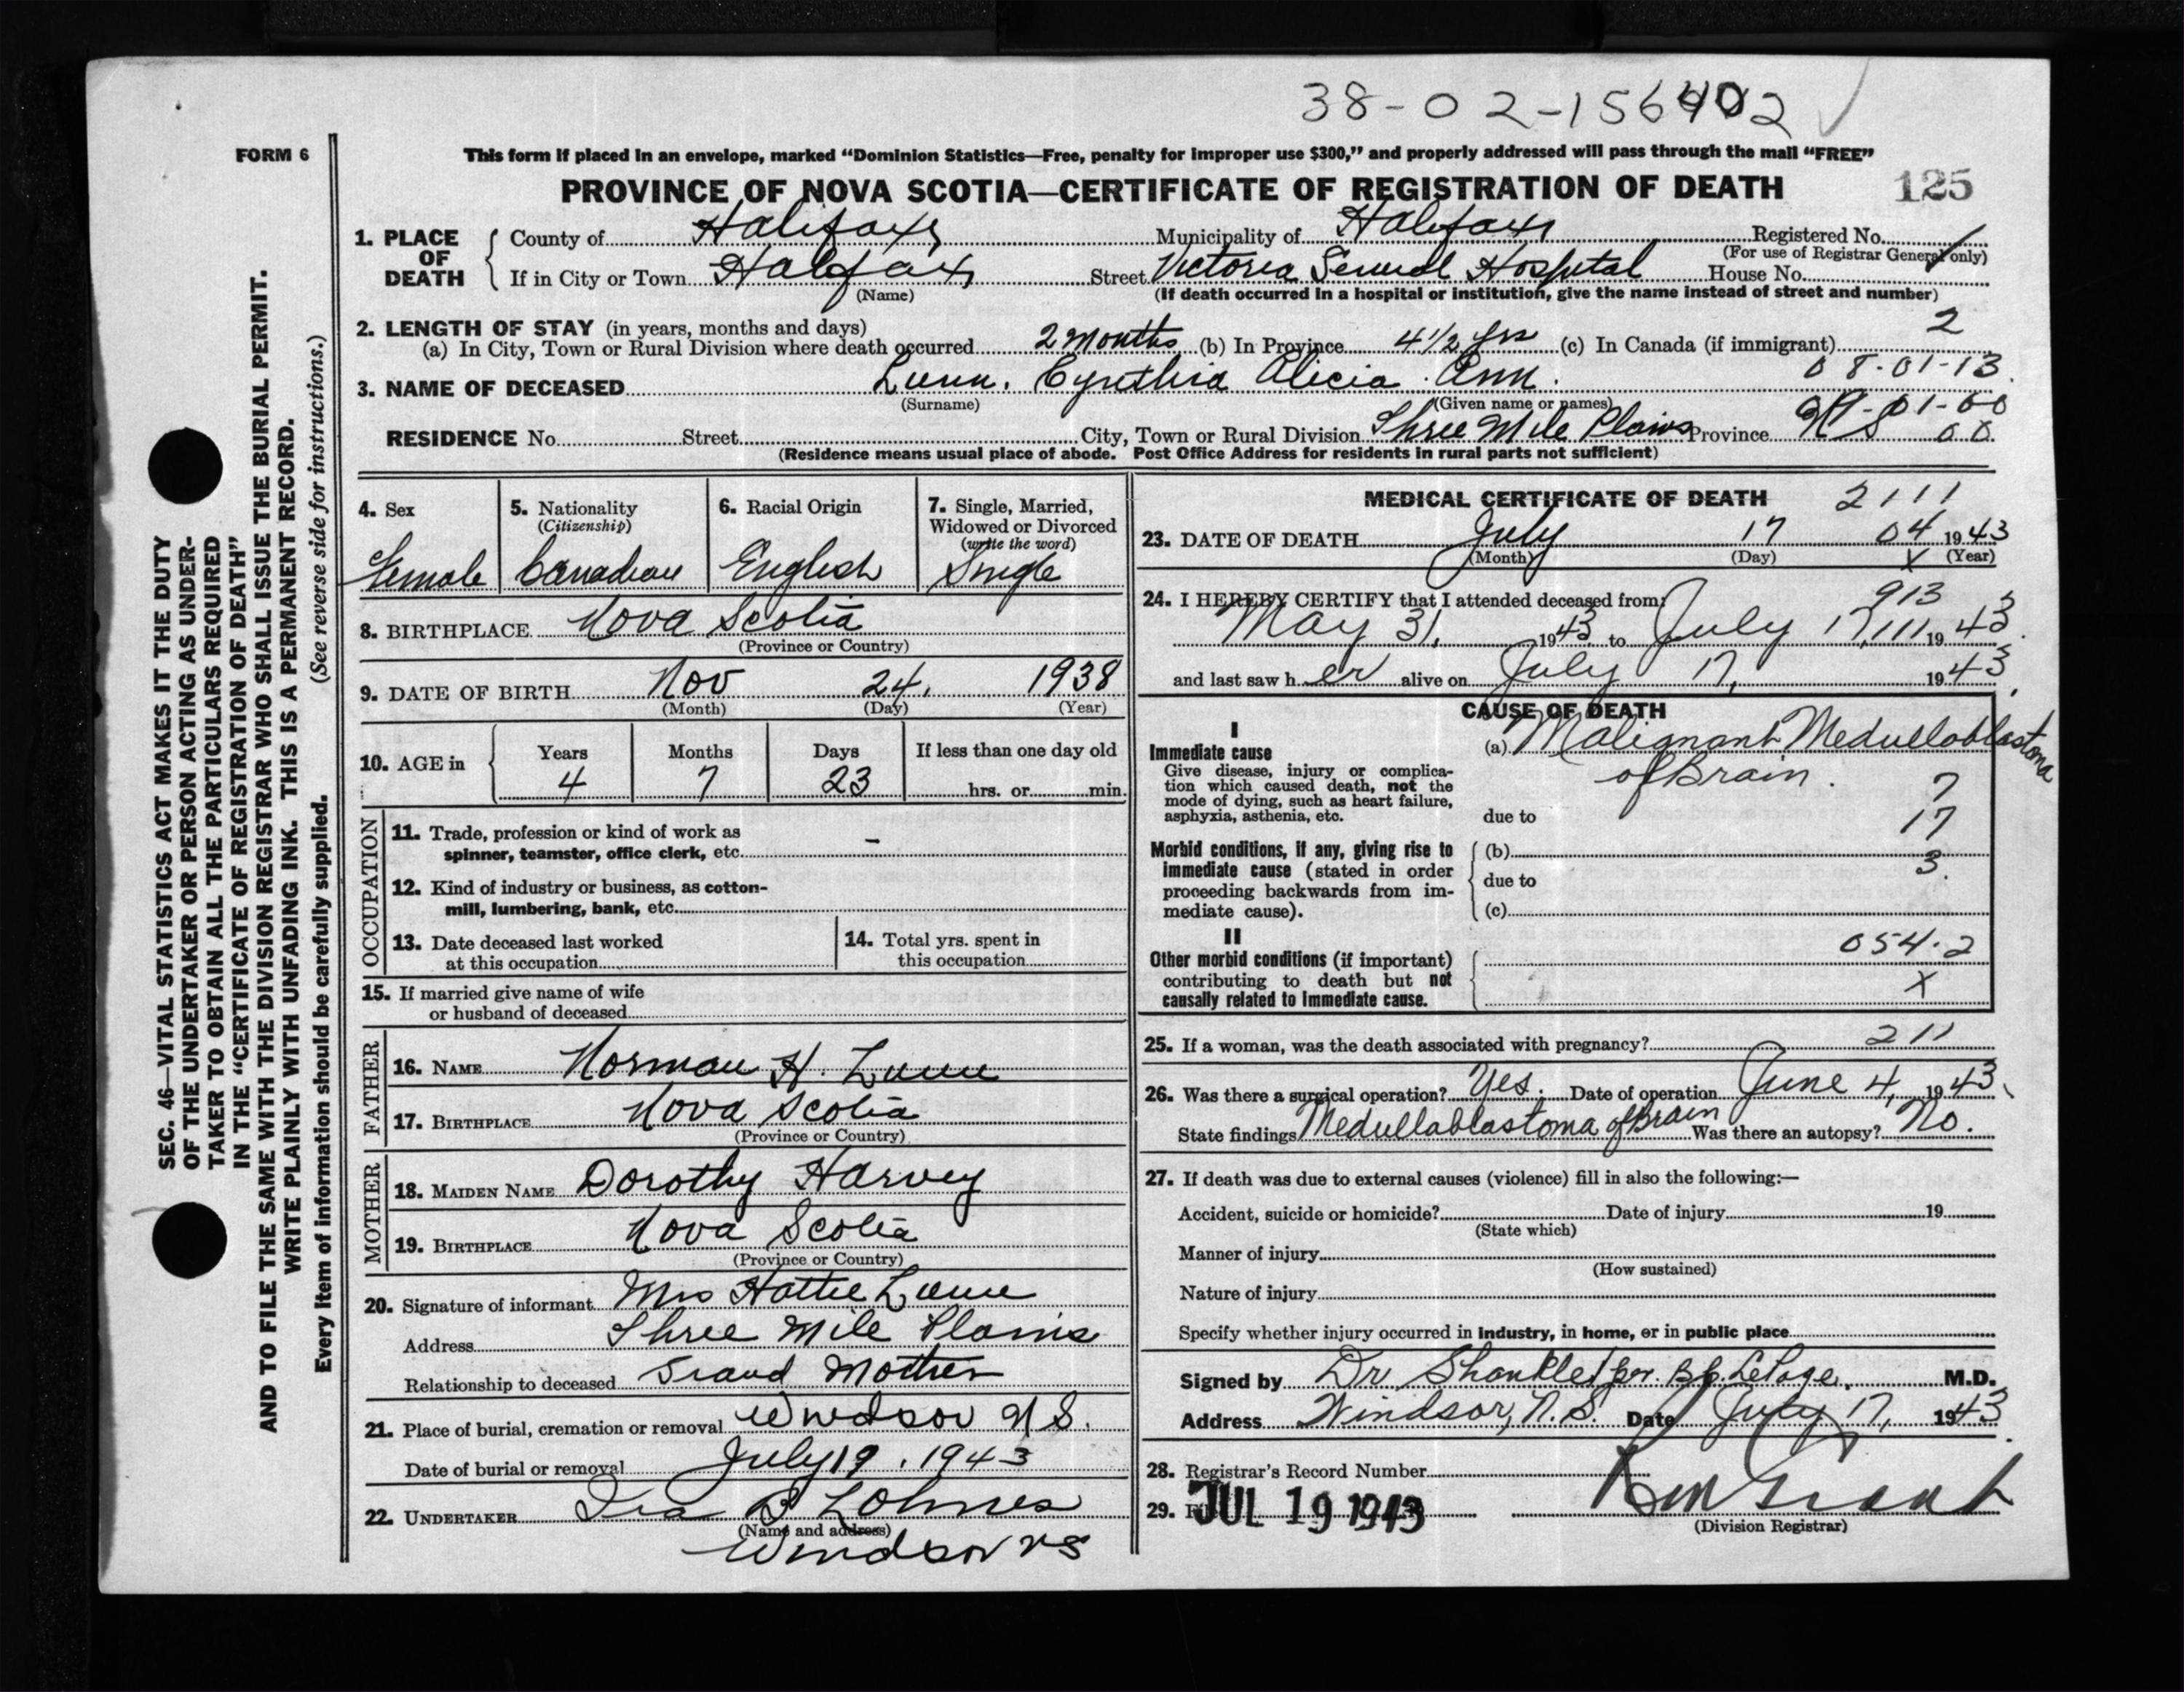 38-02-156402
FORM 6
This form if placed in an envelope, marked “Dominion Statistics—Free, penalty for improper use $300,” and properly addressed will pass through the mail “FREE”
PROVINCE OF NOVA SCOTIA—CERTIFICATE OF REGISTRATION OF DEATH 125
1. PLACE OF DEATH
County of Halifax Municipality of Halifax Registered No.
(For use of Registrar General only)
If in City or Town Halifax Street Victoria General Hospital House No.
(Name) (If death occurred in a hospital or institution, give the name instead of street and number)
2. LENGTH OF STAY (in years, months and days) 2
(a) In City, Town or Rural Division where death occurred 2 months (b) In Province 4 1/2 yrs (c) In Canada (if immigrant)
3. NAME OF DECEASED Lunn, Cynthia Alicia Ann. 08-01-13
(Surname) (Given name or names)
RESIDENCE No. Street City, Town or Rural Division Three Mile Plains Province N S
(Residence means usual place of abode. Post Office Address for residents in rural parts not sufficient)
SEC. 46—VITAL STATISTICS ACT MAKES IT THE DUTY
OF THE UNDERTAKER OR PERSON ACTING AS UNDER-
TAKER TO OBTAIN ALL THE PARTICULARS REQUIRED
IN THE “CERTIFICATE OF REGISTRATION OF DEATH”
AND TO FILE THE SAME WITH THE DIVISION REGISTRAR WHO SHALL ISSUE THE BURIAL PERMIT.
WRITE PLAINLY WITH UNFADING INK. THIS IS A PERMANENT RECORD.
Every item of information should be carefully supplied. (See reverse side for instructions.)
4. Sex
Female
5. Nationality
(Citizenship)
Canadian
6. Racial Origin
English
7. Single, Married,
Widowed or Divorced
(write the word)
Single
8. BIRTHPLACE Nova Scotia
(Province or Country)
9. DATE OF BIRTH Nov 24, 1938
(Month) (Day) (Year)
10. AGE in Years Months Days If less than one day old
4 7 23 hrs. or min.
OCCUPATION
11. Trade, profession or kind of work as
spinner, teamster, office clerk, etc. –
12. Kind of industry or business, as cotton-
mill, lumbering, bank, etc.
13. Date deceased last worked
at this occupation
14. Total yrs. spent in
this occupation
15. If married give name of wife
or husband of deceased
FATHER
16. NAME Norman H. Lunn
17. BIRTHPLACE Nova Scotia
(Province or Country)
MOTHER
18. MAIDEN NAME Dorothy Harvey
19. BIRTHPLACE Nova Scotia
(Province or Country)
20. Signature of informant Mrs Hattie Lunn
Address Three Mile Plains
Relationship to deceased Grand Mother
21. Place of burial, cremation or removal Windsor N S.
Date of burial or removal July 19, 1943
22. UNDERTAKER Ira B Lohnes
(Name and address)
Windsor NS
MEDICAL CERTIFICATE OF DEATH 2111
23. DATE OF DEATH July 17 04 1943
(Month) (Day) X (Year)
24. I HEREBY CERTIFY that I attended deceased from: 913
May 31, 1943 to July 17, 111 1943
and last saw her alive on July 17, 1943
CAUSE OF DEATH
I
Immediate cause
Give disease, injury or complica-
tion which caused death, not the
mode of dying, such as heart failure,
asphyxia, asthenia, etc.
(a) Malignant Medulloblastoma
of Brain. 7
due to 17
Morbid conditions, if any, giving rise to
immediate cause (stated in order
proceeding backwards from im-
mediate cause).
(b)
due to 3.
(c)
II
Other morbid conditions (if important)
contributing to death but not
causally related to immediate cause.
054.2
X
25. If a woman, was the death associated with pregnancy? 211
26. Was there a surgical operation? Yes. Date of operation June 4, 1943
State findings Medulloblastoma of Brain Was there an autopsy? No.
27. If death was due to external causes (violence) fill in also the following:—
Accident, suicide or homicide? Date of injury 19
(State which)
Manner of injury
(How sustained)
Nature of injury
Specify whether injury occurred in industry, in home, or in public place
Signed by Dr Shankle per. LePage, M.D.
Address Windsor, N.S. Date July 17, 1943
28. Registrar's Record Number
29. JUL 19 1943
(Division Registrar)